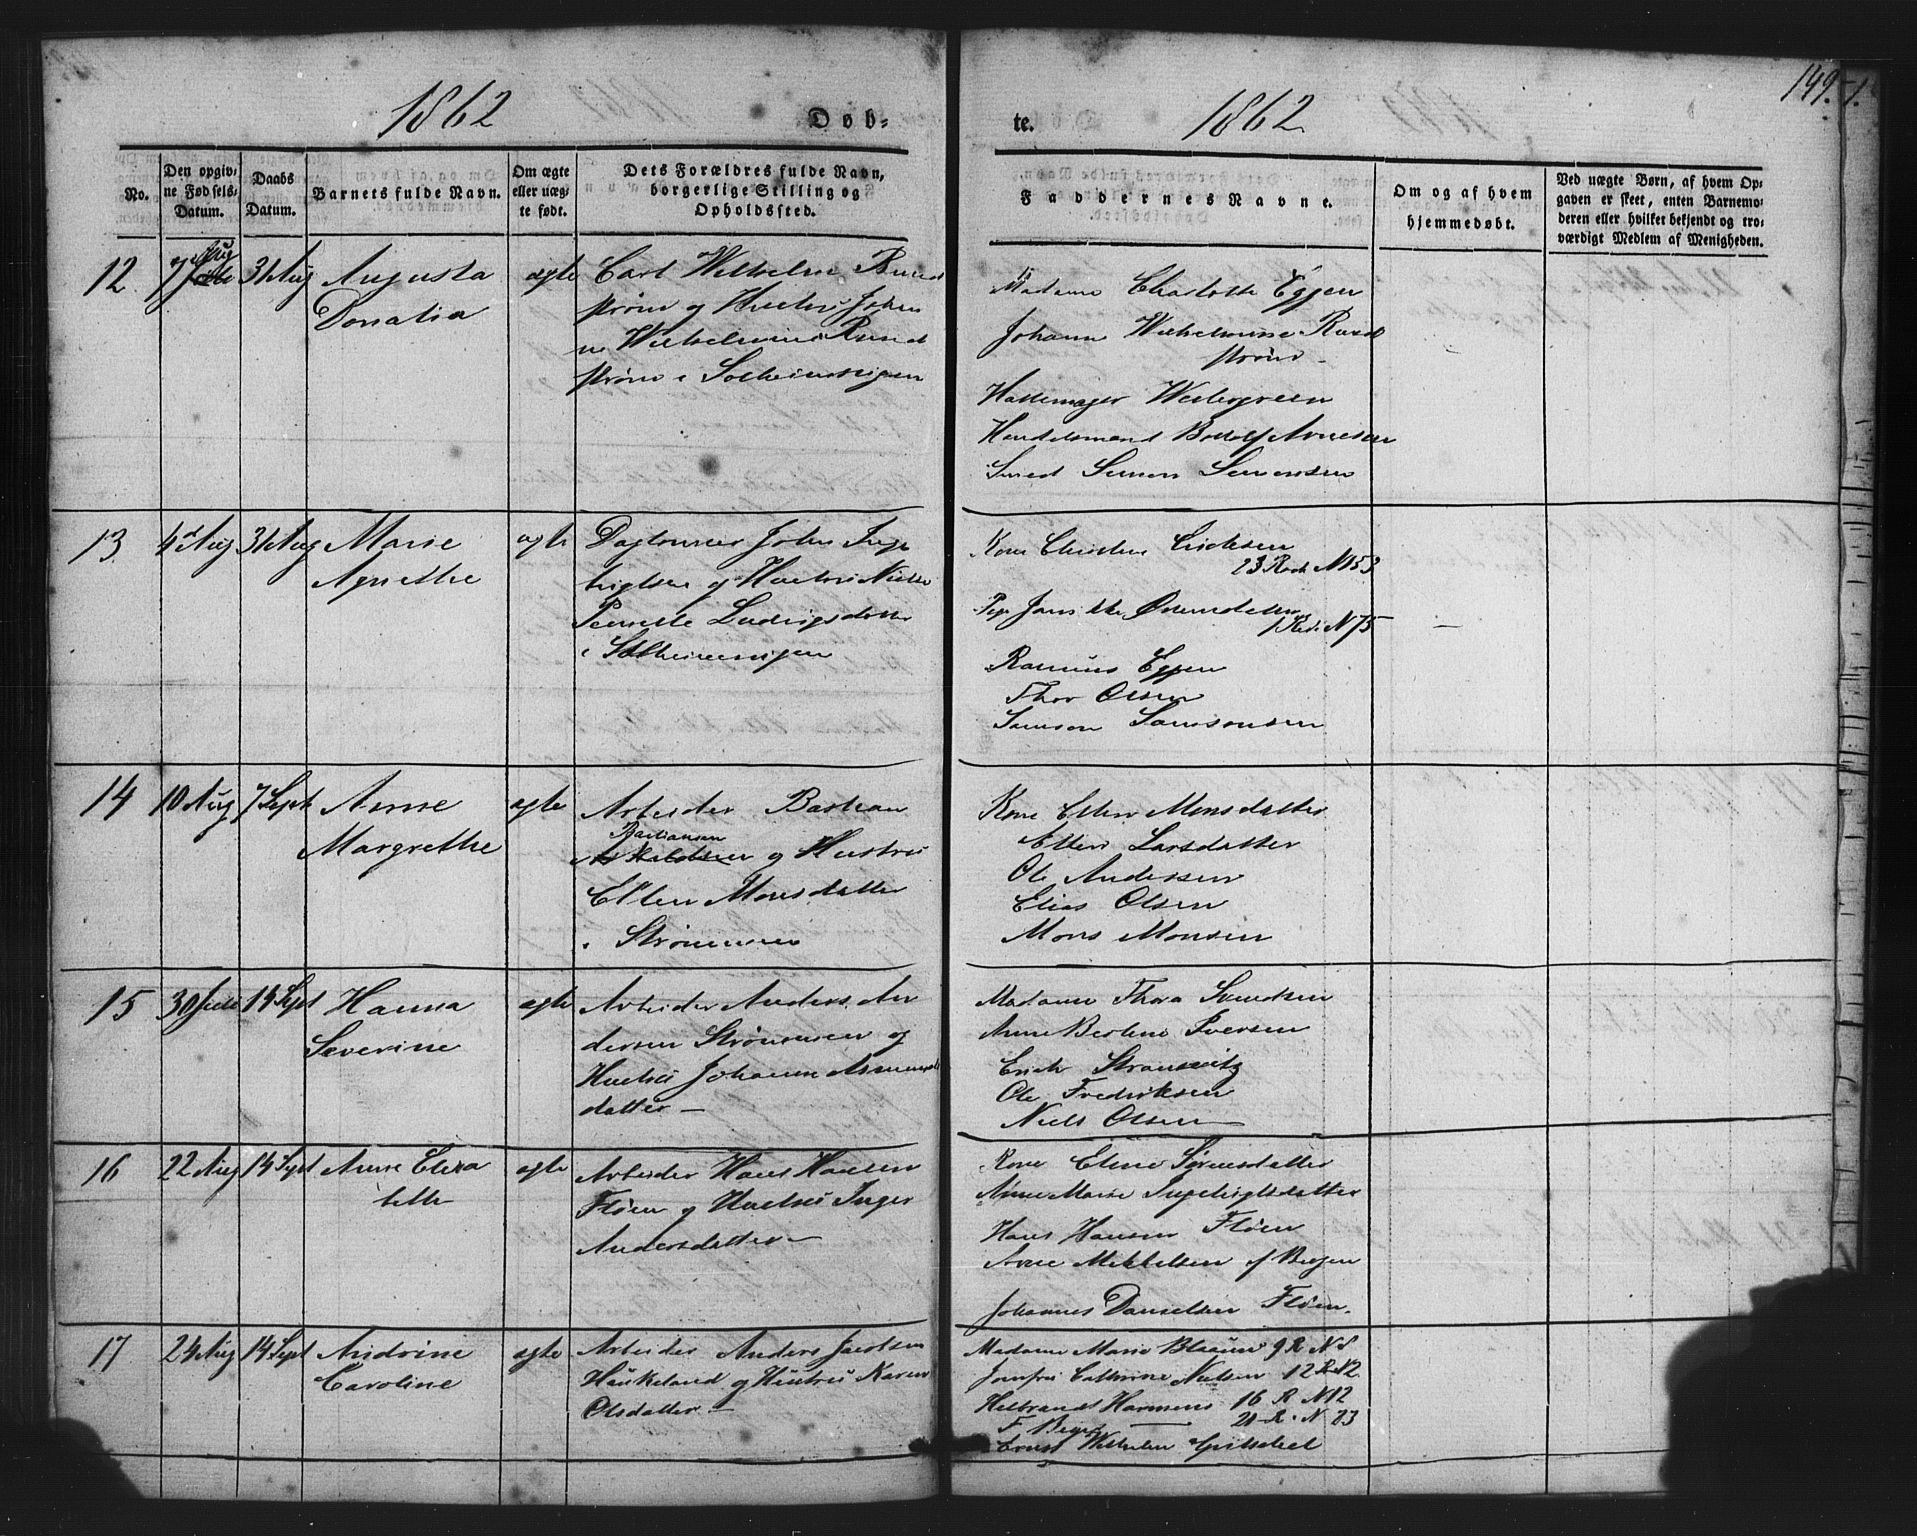 1862
Døb-
No.
Den opgiv-
ne Fødsels-
Datum.
Daabs
Datum.
Barnets fulde Navn.
Om ægte
eller uæg-
te født.
Dets Forældres fulde Navn,
borgerlige Stilling og
Opholdssted.
12.
7 Aug
31 Aug
Augusta
Donatia
ægte
Carl Wilhelm Rund
strøm og Hustru Johan
ne Wilhelmine Rund
strøm i Solheimsvigen
13.
4 Aug
31 Aug
Marie
Agnethe
ægte
Daglønner John Inge
brigtsen og Hustru
Pernelle Ludvigsdatter
i Solheimsvigen
14
10 Aug
7 Sept
Anne
Margrethe
ægte
Arbeider Bastian
Bastiansen
og Hustru
Ellen Monsdatter
i Strømmen
15
30 Juli
14 Sept
Hanna
Severine
ægte
Arbeider Anders An
dersen Strømmen og
Hustru Johanne
datter
16
22 Aug
14 Sept
Anne Eliza
beth
ægte
Arbeider Hans Hansen
Fløen og Hustru Inger
Andersdatter
17
24 Aug
14 Sept
Andrine
Caroline
ægte
Arbeider Anders Jacobsen
Haukeland og Hustru Karen
Olsdatter
te.
1862
149.
Faddernes Navne.
Om og af hvem
hjemmedøbt.
Ved uægte Børn, af hvem Op-
gaven er skeet, enten Barnemo-
deren eller hvilket bekjendt og tro-
værdigt Medlem af Menigheden.
Madame Charlotte Eggen
Johanne Wilhelmine Rund
strøm
Hattemager Westergreen
Handelsmand Bottolf Arnesen
Smed Simen Simensen
Kone Christine Ericksen
23 Rode N 153
Pige Jannikke
1 Rode N 75
Rasmus Eggen
Thor Olsen
Samson Samsonsen
Kone Ellen Monsdatter
Ellen Larsdatter
Ole Andersen
Elias Olsen
Mons Monsen
Madame Thora Svendsen
Anne Bertine Iversen
Erich
Ole Frederiksen
Niels Olsen
Kone Eline Sørensdatter
Anne Marie Ingebrigtsdatter
Hans Hansen Fløen
Arne Mikkelsen af Bergen
Johannes Danielsen Fløen.
Madame Marie Blaauw 9 R N 5
Jomfru Cathrine Nielsen 12 R N 2
Hilbrandt Harmens 16 R N 12
F. Beyer 21 R. N 23
Ernst Wilhelm